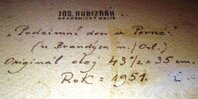 JOS. HUBIŽŇÁK
AKADEMICKÝ MALÍŘ
"Podzimní den v Porně."
(u Brandýsa n./Orl.)
Originál olej 43½ x 35 cm.
Rok: 1951.